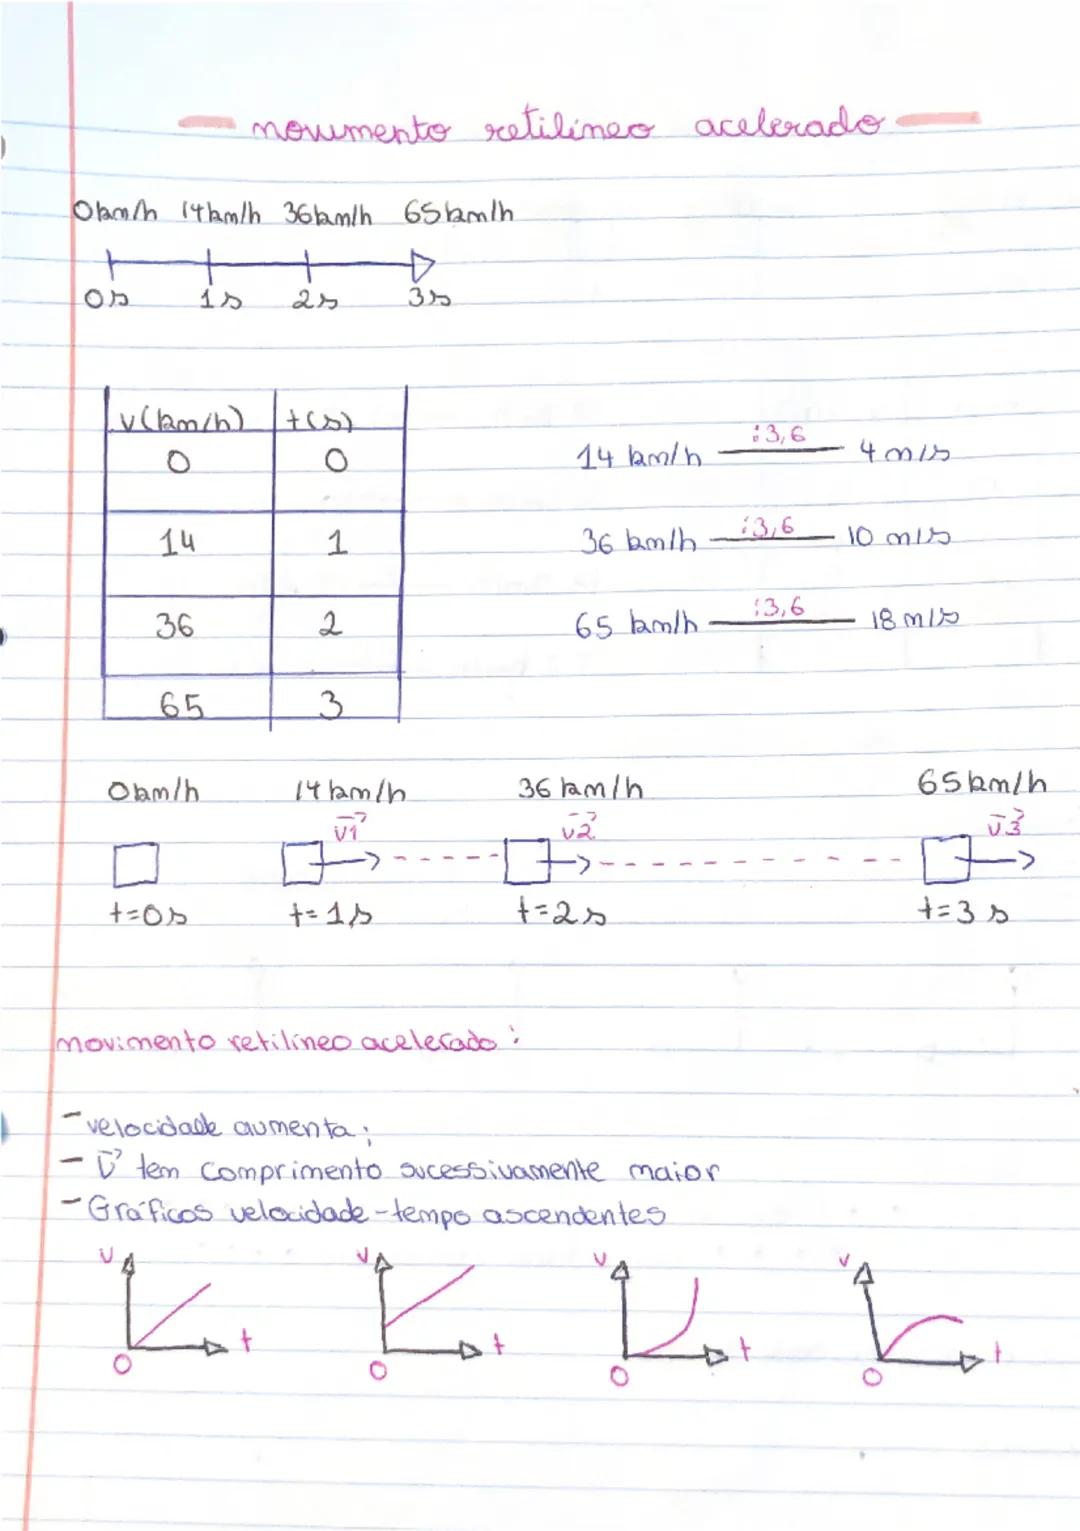 movimento retilíneo acelerado
0km/h 14km/h 36km/h 65km/h
0s 1s 2s 3s
v(km/h) t(s)
0 0
14 km/h :3,6 4 m/s
14 1
36 km/h :3,6 10 m/s
36 2
65 km/h :3,6 18 m/s
65 3
0km/h 14km/h 36km/h 65km/h
v1 v2 v3
t=0s t=1s t=2s t=3s
movimento retilíneo acelerado:
- velocidade aumenta;
- v tem comprimento sucessivamente maior
- Gráficos velocidade-tempo ascendentes
v v v v
t t t t
0 0 0 0